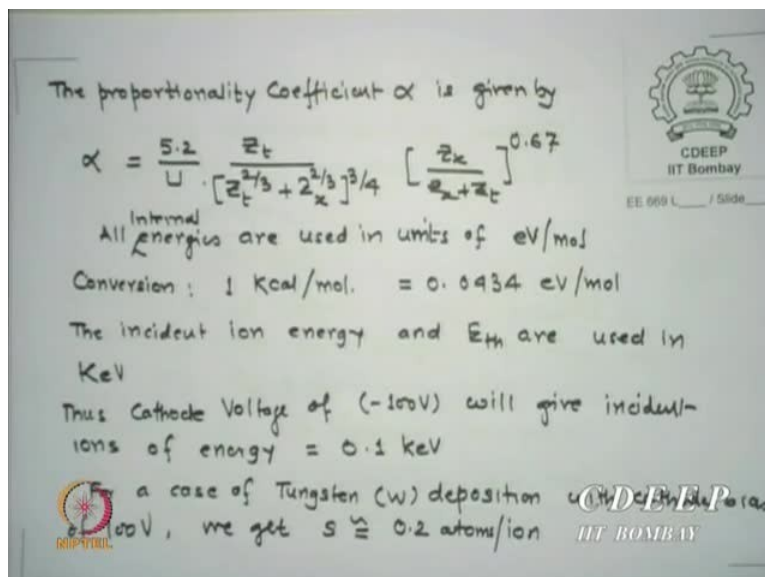 The proportionality Coefficient α is given by
α = 5.2/U . Zt/[Zt^2/3 + Zx^2/3]^3/4 [Zx/Zx+Zt]^0.67
Internal
All energies are used in units of eV/mol
Conversion : 1 Kcal/mol. = 0.0434 eV/mol
The incident ion energy and Eth are used in
KeV
Thus Cathode Voltage of (-100V) will give incident
ions of energy = 0.1 keV
a case of Tungsten (W) deposition with cathode bias
100V, we get S ≅ 0.2 atoms/ion
CDEEP
IIT Bombay
EE 669 L___ / Slide___
NPTEL
CDEEP
IIT BOMBAY